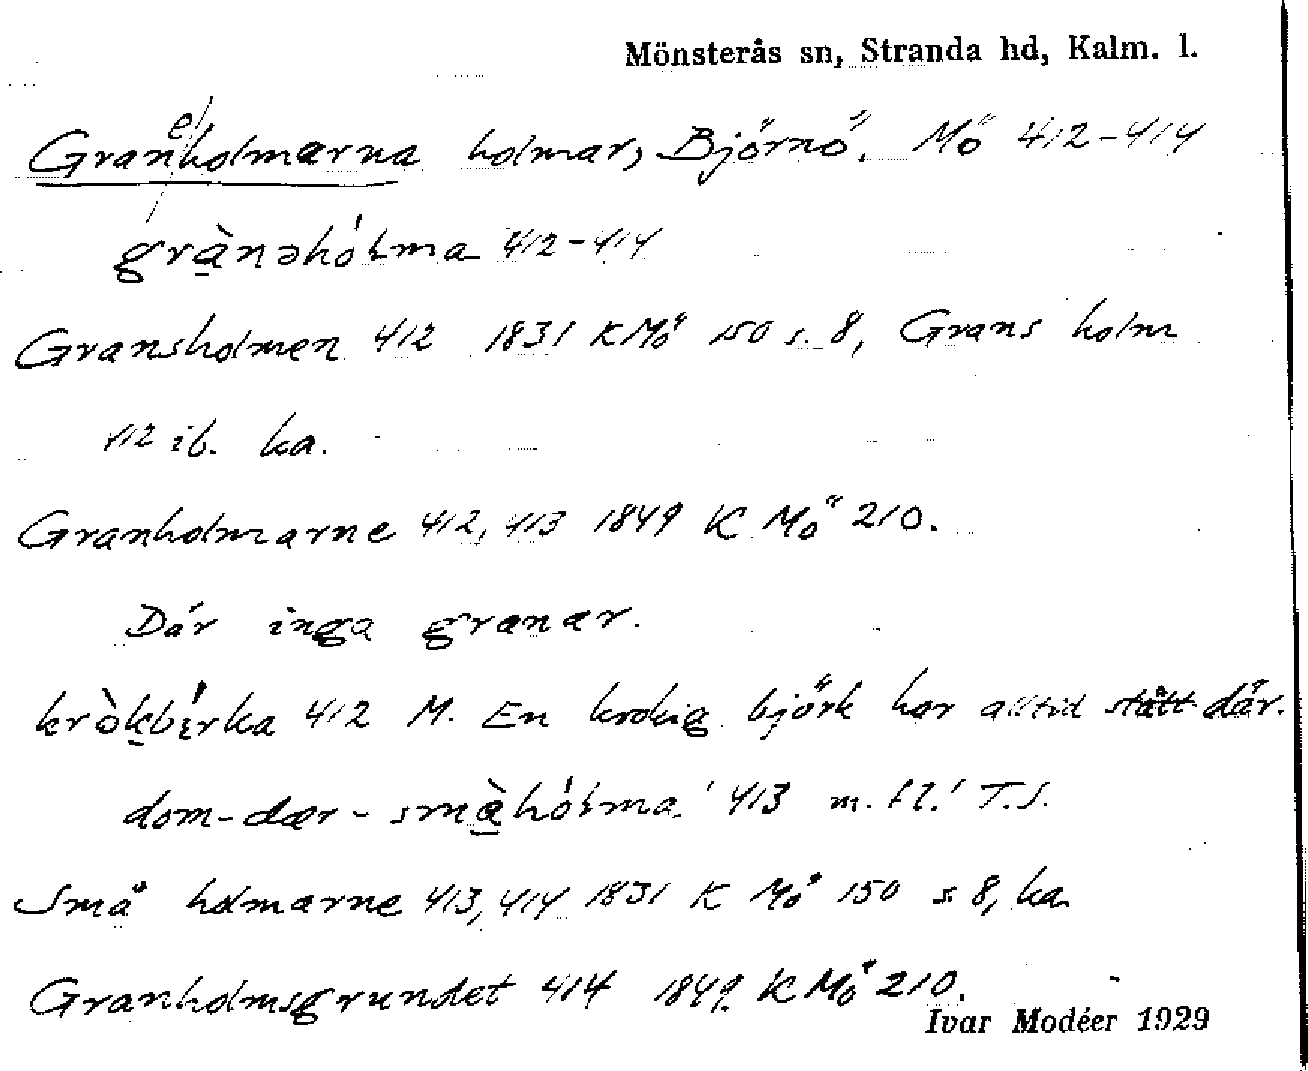 Mönsterås sn, Stranda hd, Kalm. l.
Graneholmarna holmar, Björnö. Mö 412-414
grànəhólma 412-414
Gransholmen 412 1831 K Mö 150 s. 8, Grans holm
412 ib. ka.
Granholmarne 412, 413 1849 K Mö 210.
Där inga granar.
kròkbírka 412 M. En krokig björk har alltid stått där.
dom-dær-småhólma. 413 m. fl. T.S.
Små holmarne 413, 414 1831 K Mö 150 s 8, ka
Granholmsgrundet 414 1849. K Mö 210.
Ivar Modéer 1929